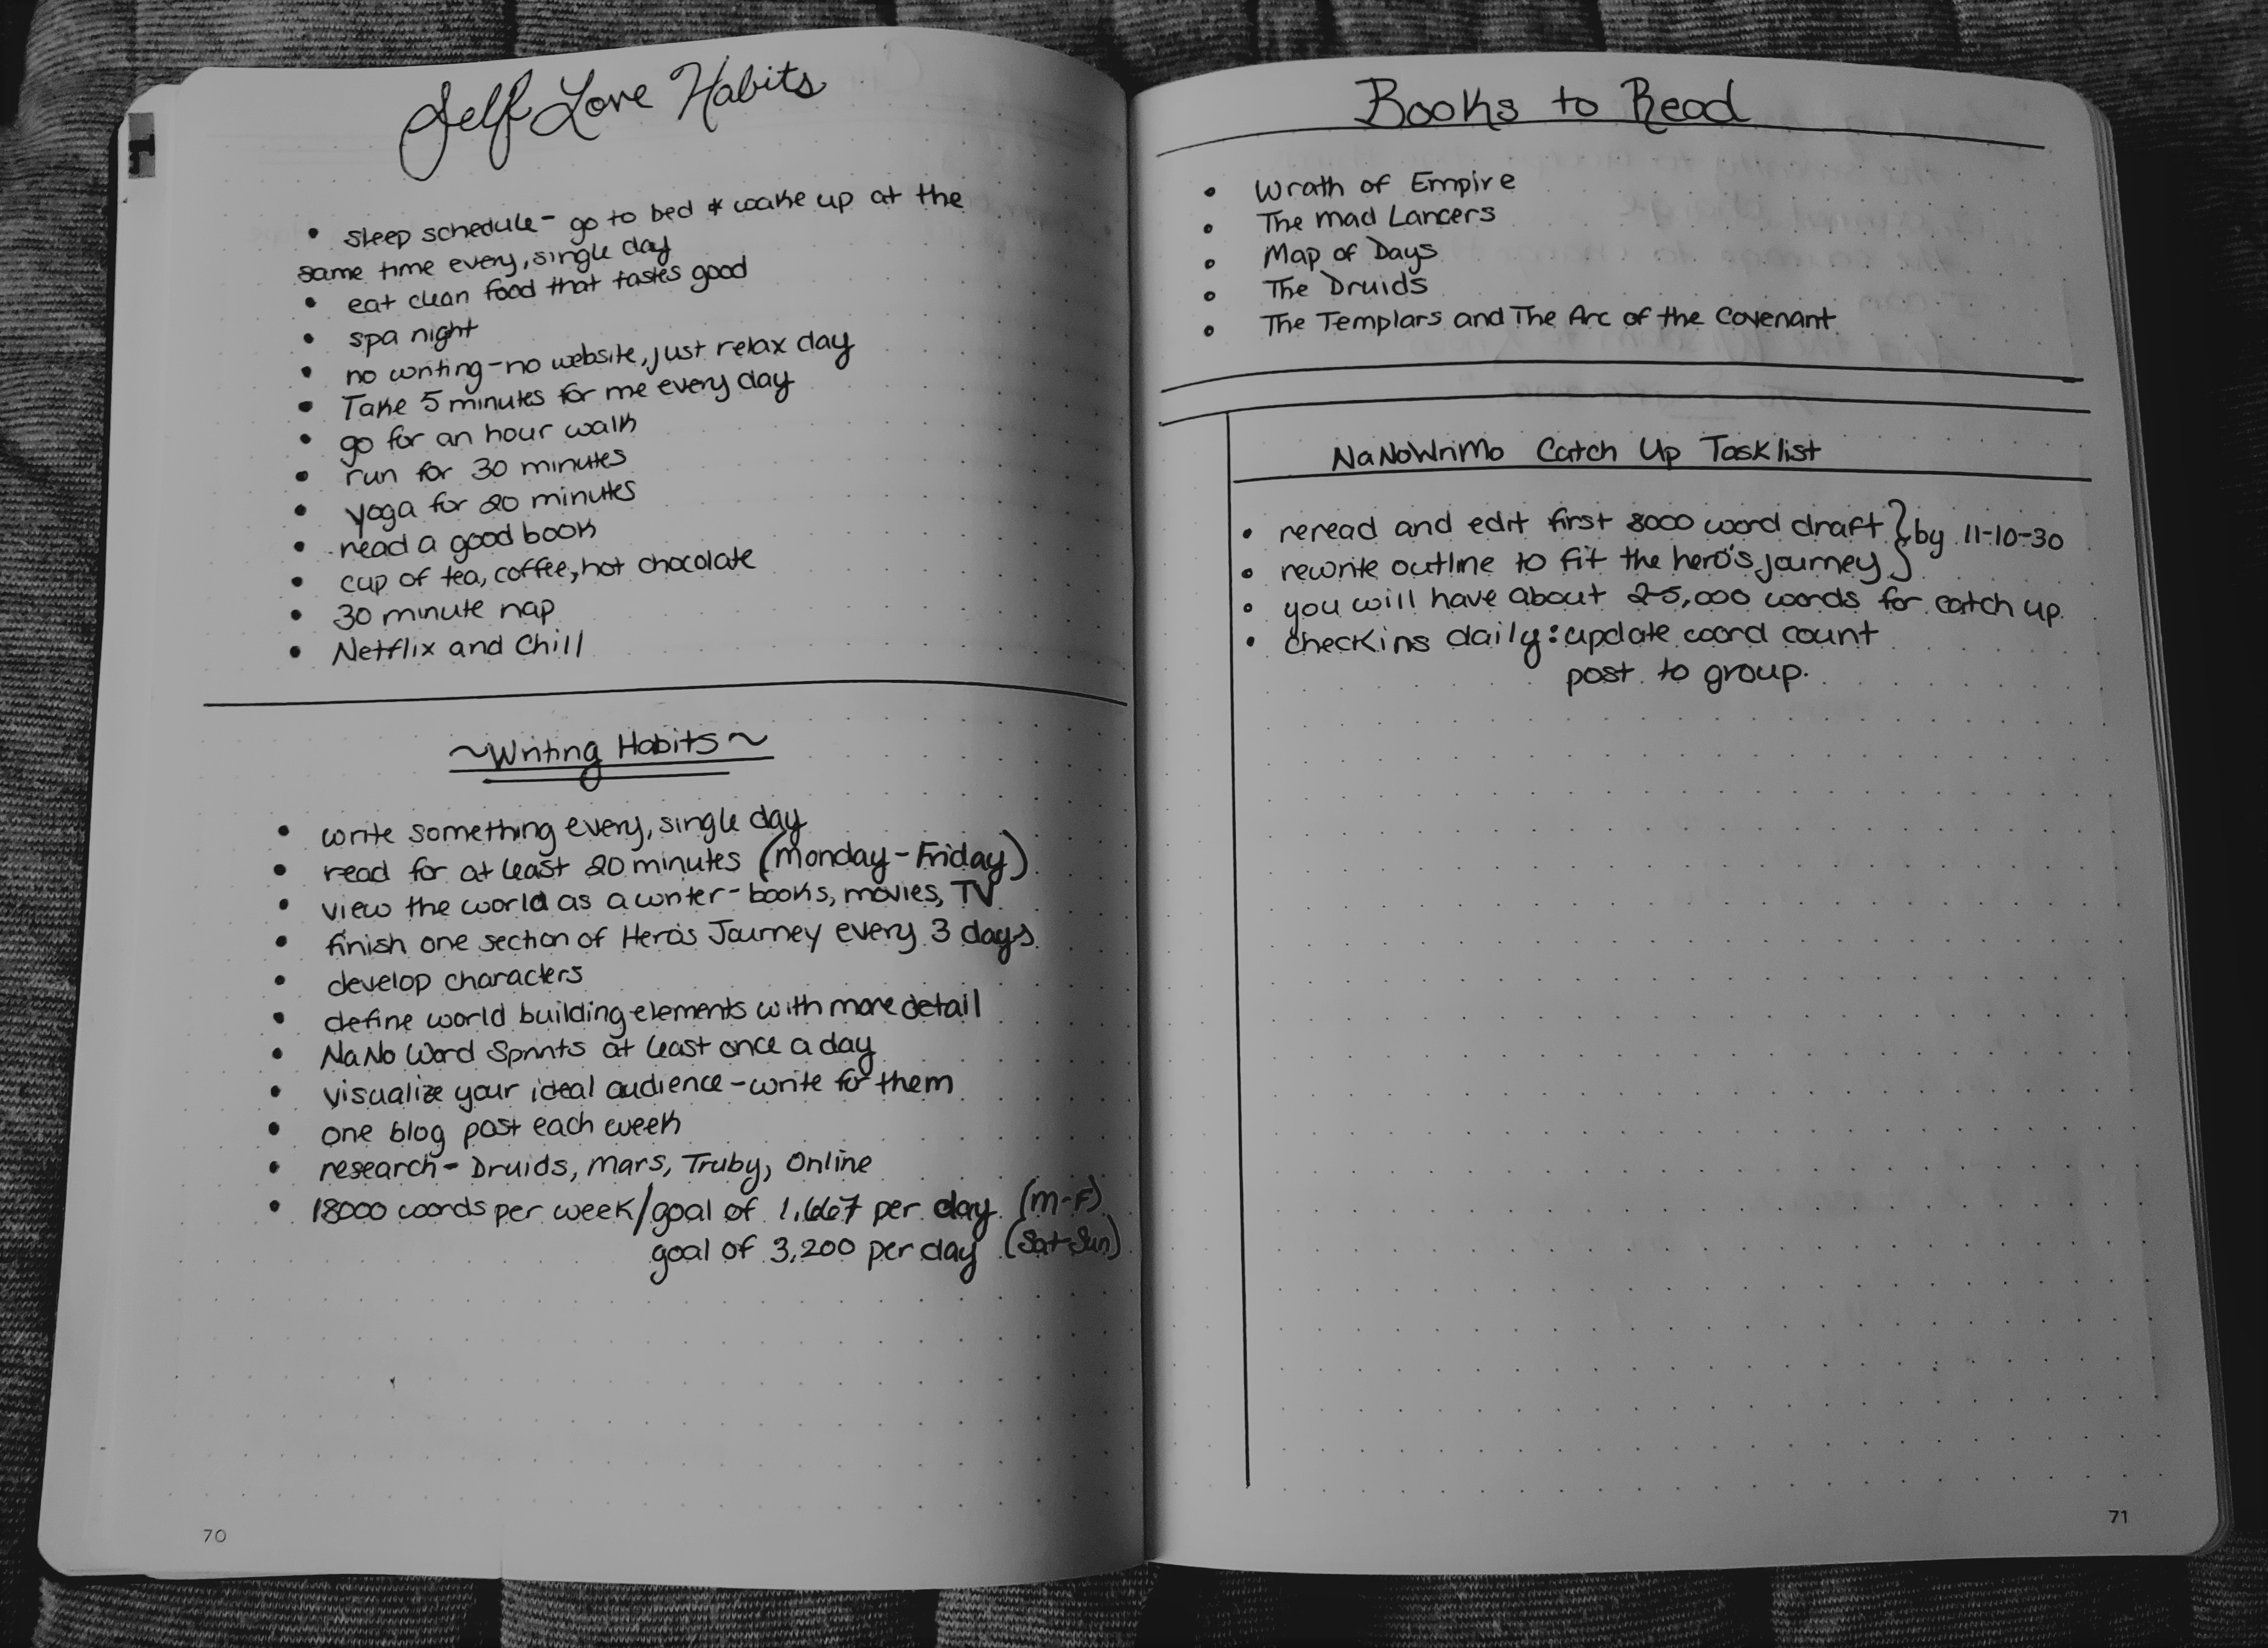 Self Love Habits
• sleep schedule - go to bed & wake up at the
same time every, single day
• eat clean food that tastes good
• spa night
• no writing - no website, just relax day
• Take 5 minutes for me every day
• go for an hour walk
• run for 30 minutes
• yoga for 20 minutes
• read a good book
• cup of tea, coffee, hot chocolate
• 30 minute nap
• Netflix and Chill
~Writing Habits~
• write something every, single day
• read for at least 20 minutes (Monday - Friday)
• view the world as a writer - books, movies, TV
• finish one section of Hero's Journey every 3 days
• develop characters
• define world building elements with more detail
• NaNo Word Sprints at least once a day
• visualize your ideal audience - write for them
• one blog post each week
• research - Druids, Mars, Truby, Online
• 18000 words per week/goal of 1,667 per day (M-F)
goal of 3,200 per day (Sat-Sun)
70
Books to Read
• Wrath of Empire
• The Mad Lancers
• Map of Days
• The Druids
• The Templars and The Arc of the Covenant
NaNoWriMo Catch Up Tasklist
• reread and edit first 8000 word draft } by 11-10-30
• rewrite outline to fit the hero's journey
• you will have about 25,000 words for catch up
• checkins daily: update word count
post to group.
71